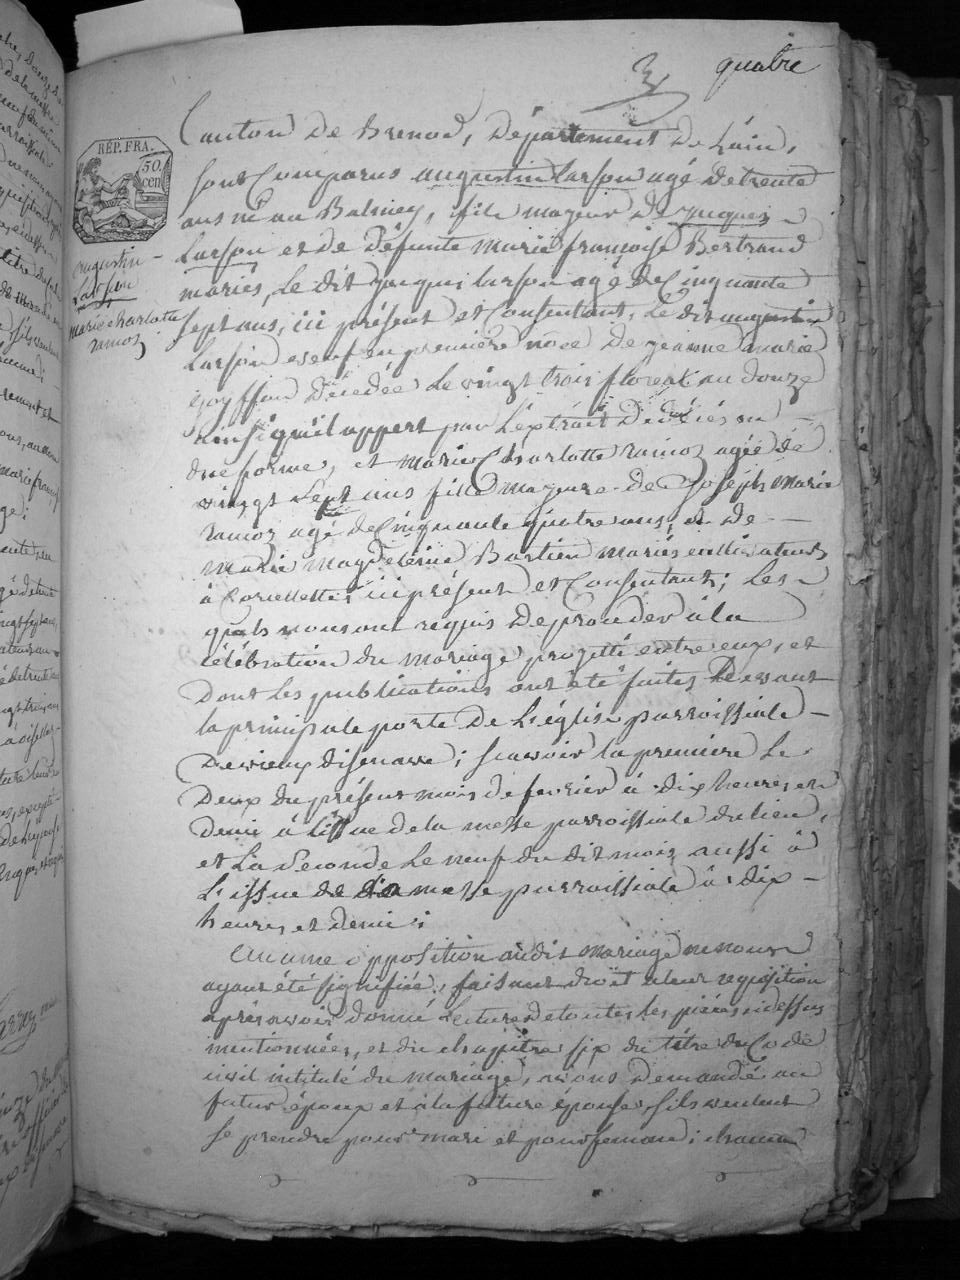 quatre
Canton De Brenod, Département De L'ain,
RÉP. FRA.
50.
cen
sont Comparus augustin Larson agé De trente
ans né au Balmey, fils majeur De Jacques
Augustin
Larson et de Défunte Marie françoise Bertrand
Larson
mariés, Le dit Jacques Larson agé De Cinquante
marie charlotte
ramoz
sept ans, ici présent et Consentant, Le dit augustin
Larson veuf en première noce De jeanne marie
Décédée Le vingt trois floreal an douze
ainsi qu'il appert par L'extrait Délivré en
due forme, et marie Charlotte ramoz agée de
vingt Sept ans fille majeure De Joseph Marie
ramoz agé de Cinquante quatre ans, et De
marie magdeleine Bastien mariés cultivateurs
à Corcellettes ici présent et Consentant; Les
quels nous ont requis De proceder à la
célébration du mariage projetté entre eux, et
Dont Les publications ont été faites Devant
la principale porte De L'église parroissiale
De vieux disenave; scavoir la première Le
Deux du présent mois de fevrier à dix heures et
Demie à L'issue de la messe parroissiale du lieu,
et La Seconde Le neuf du dit mois aussi à
L'issue de la messe parroissiale à dix
heures et demie;
Aucune opposition audit mariage ne nous
ayant été signifiée, faisant droit à leur requisition
après avoir donné Lecture de toutes les pièces ci dessus
mentionnées, et du chapitre six du titre du Code
civil intitulé du mariage, avons Demandé au
futur époux et à la future épouse s'ils veulent
se prendre pour mari et pour femme; chacun